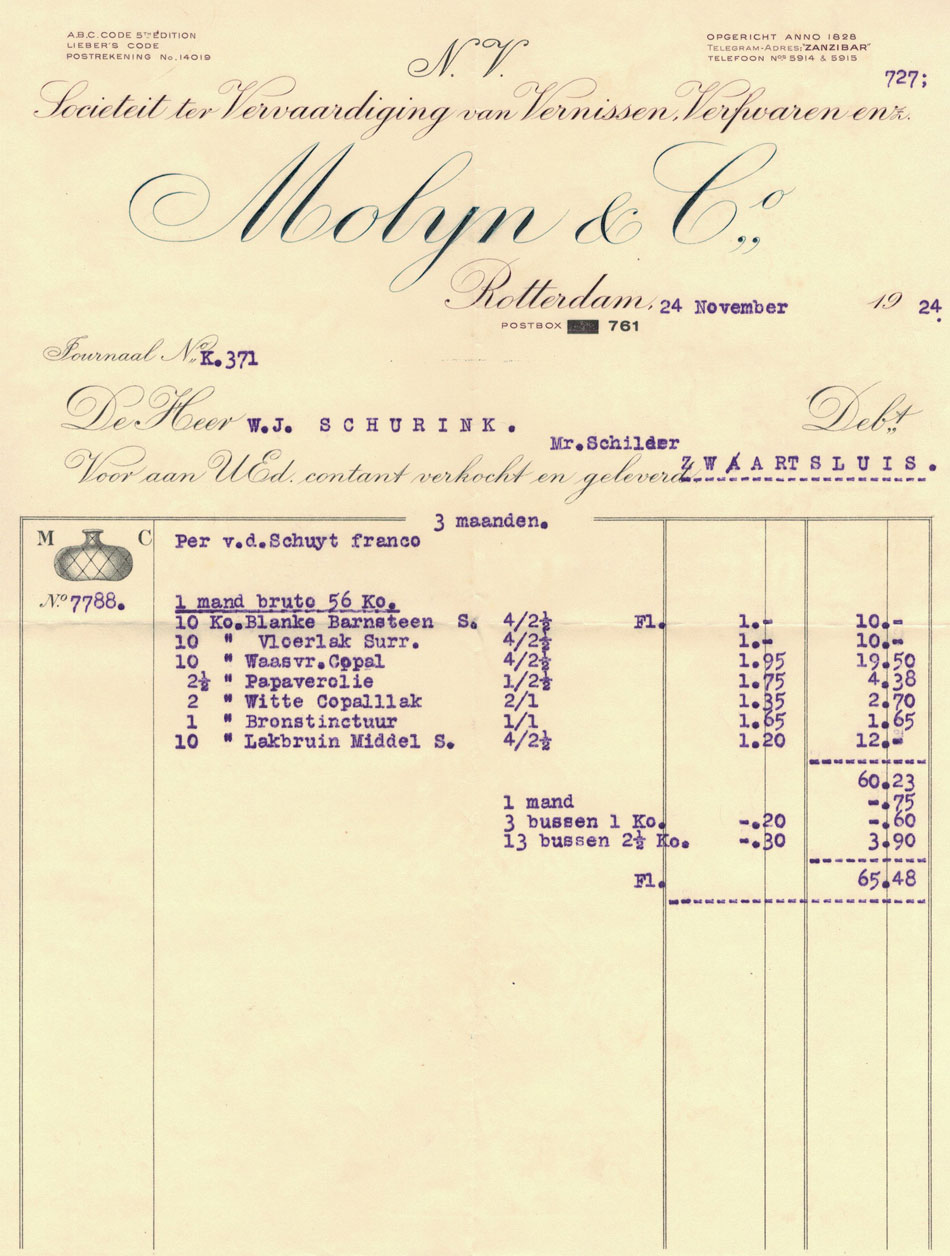 A.B.C. CODE 5TH EDITION
LIEBER'S CODE
POSTREKENING No. 14019
OPGERICHT ANNO 1828
TELEGRAM-ADRES: "ZANZIBAR"
TELEFOON Nos 5914 & 5915
727;
N.V.
Societeit ter Vervaardiging van Vernissen, Verfwaren enz.
Molyn & Co.,,
Rotterdam, 24 November 19 24.
POSTBOX 761
Journaal No. K.371
De Heer W.J. SCHURINK. Debt.
Mr.Schilder
Voor aan UEd. contant verkocht en geleverd. ZWAARTSLUIS.
3 maanden.
M C Per v.d.Schuyt franco
No 7788. 1 mand bruto 56 Ko.
10 Ko.Blanke Barnsteen S. 4/2½ Fl. 1.- 10.-
10 " Vloerlak Surr. 4/2½ 1.- 10.-
10 " Waasvr.Copal 4/2½ 1.95 19.50
2½ " Papaverolie 1/2½ 1.75 4.38
2 " Witte Copalllak 2/1 1.35 2.70
1 " Bronstinctuur 1/1 1.65 1.65
10 " Lakbruin Middel S. 4/2½ 1.20 12.-
60.23
1 mand -.75
3 bussen 1 Ko. -.20 -.60
13 bussen 2½ Ko. -.30 3.90
Fl. 65.48